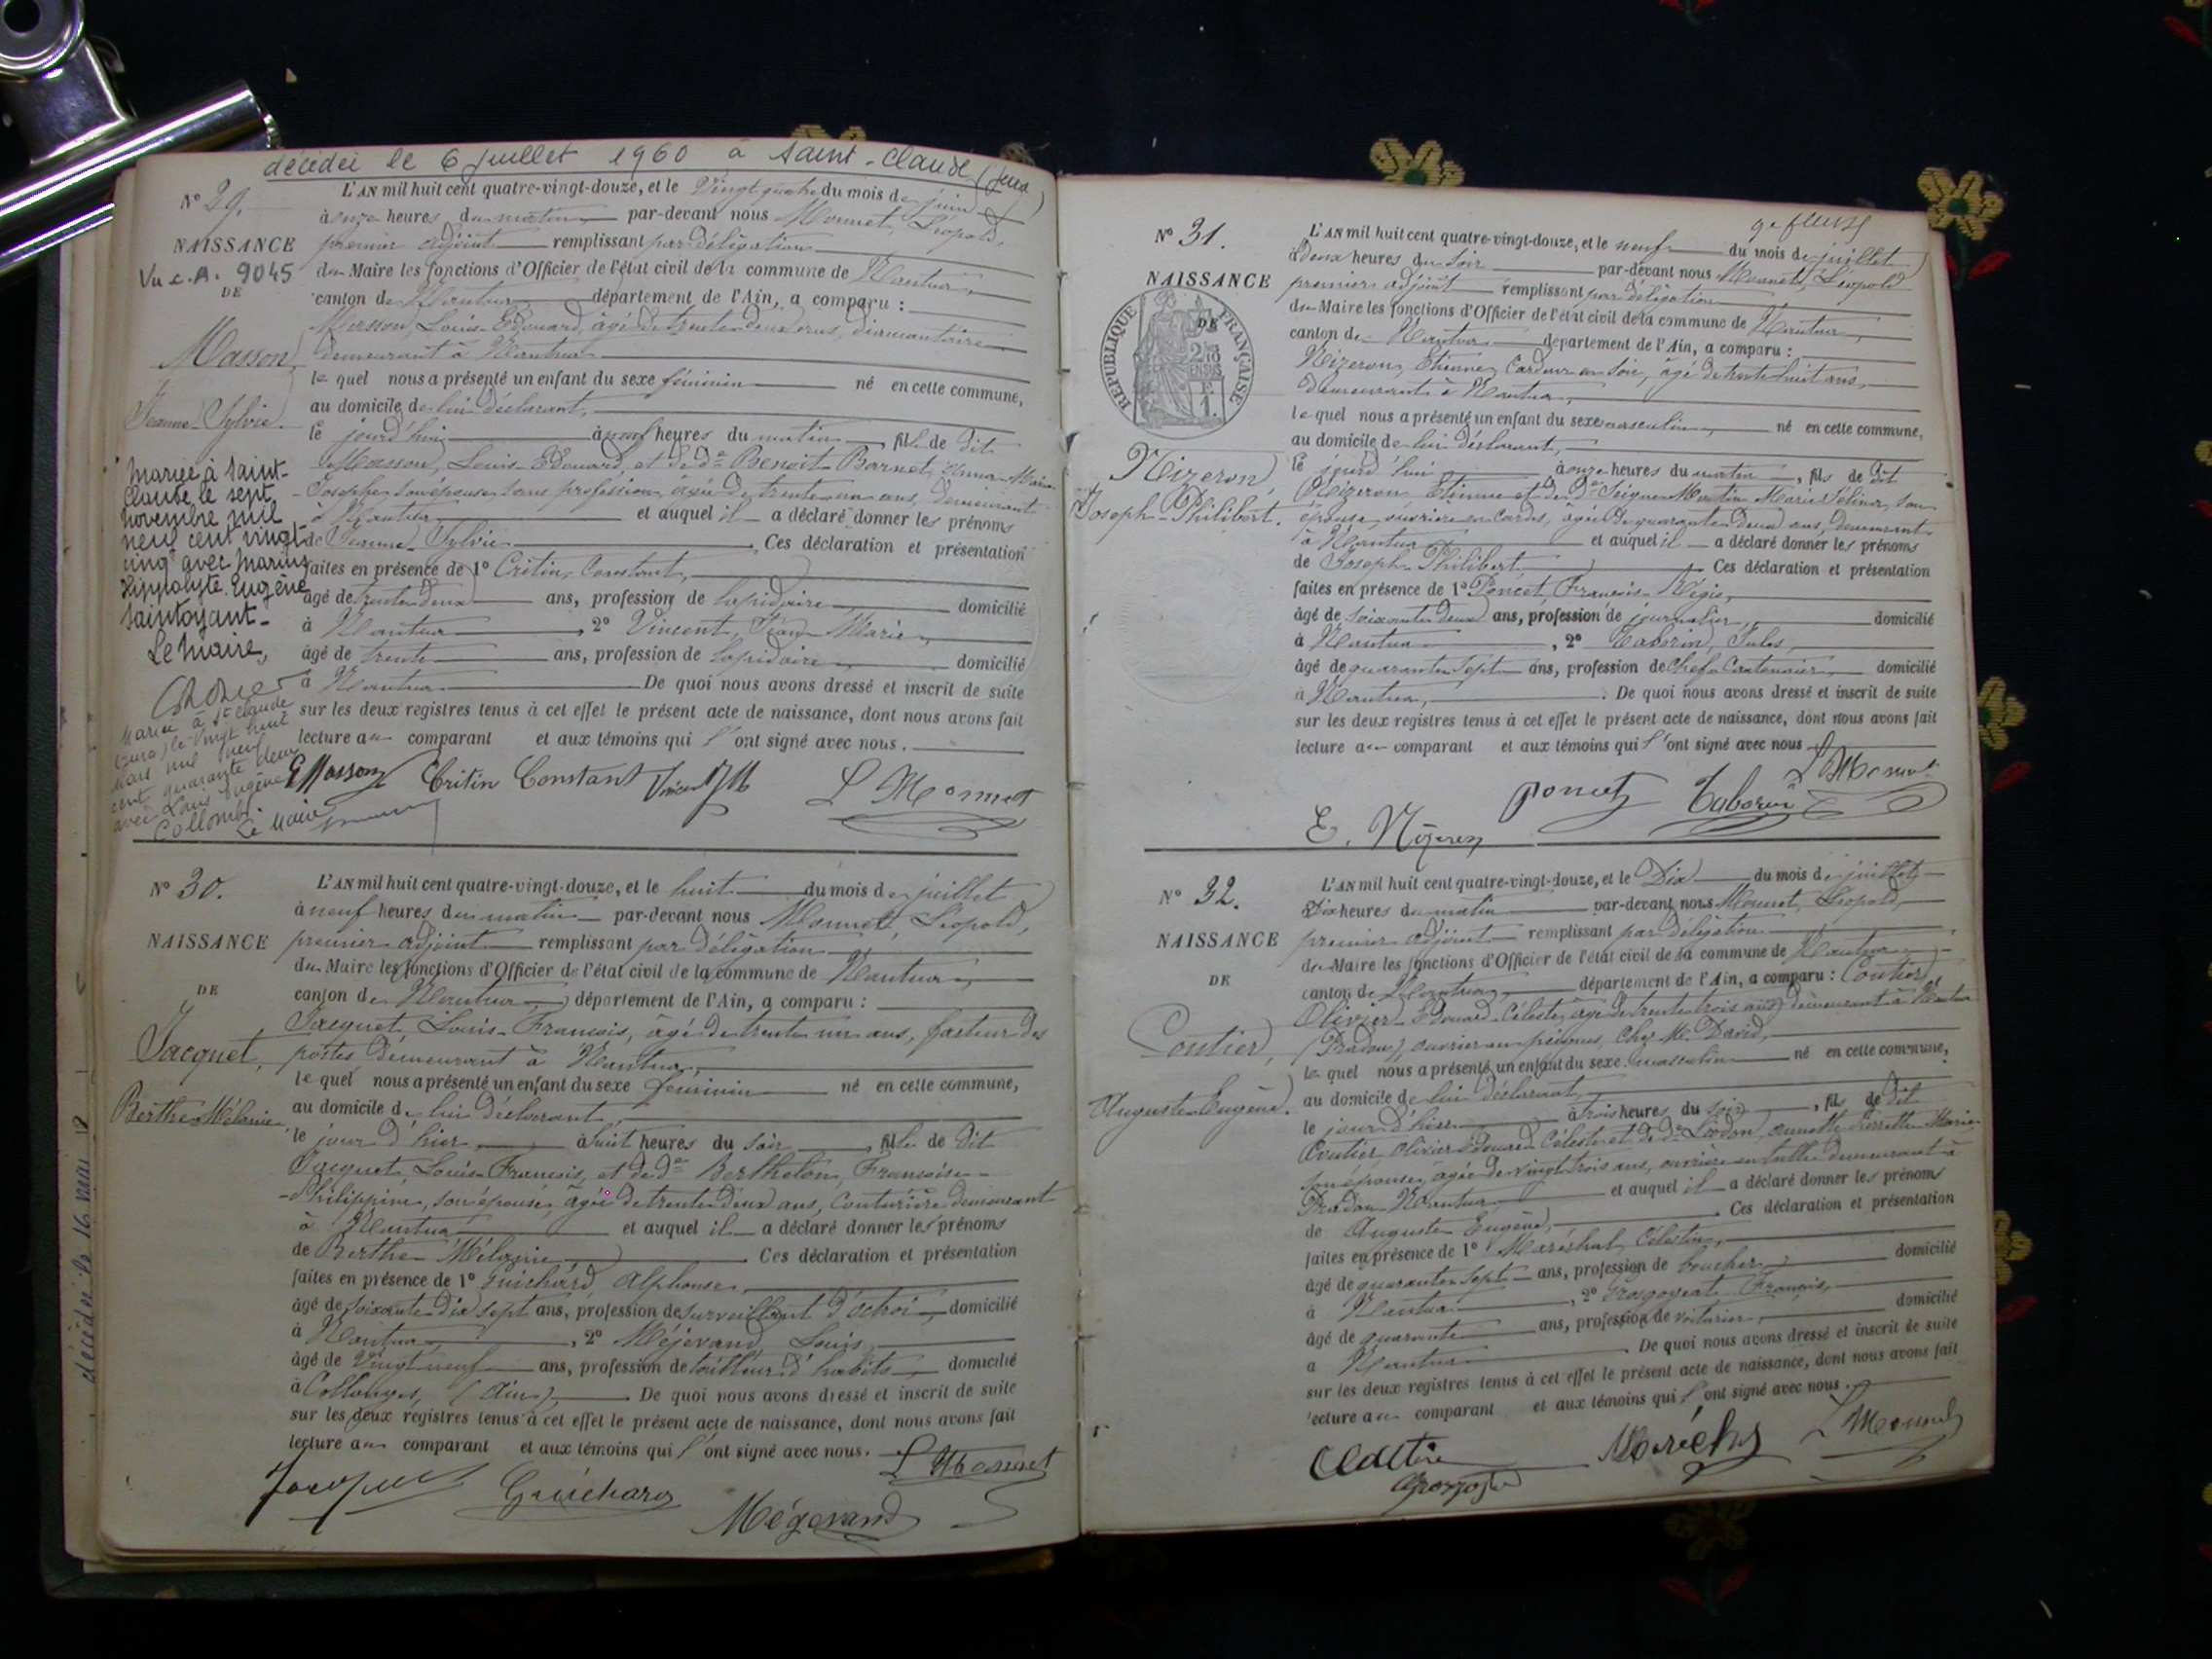 décédée le 6 juillet 1960 à Saint-Claude (Jura)
N° 29.
NAISSANCE
Vu c.A. 9045
DE
Masson,
Jeanne-Sylvie.
Mariée à Saint-
Claude le sept
novembre mil
neuf cent vingt-
cinq avec Marius
Hippolyte Eugène
Saintoyant-
Le Maire,
Mariée à St Claude
(Jura) le vingt huit
mars mil neuf
cent quarante deux
avec Louis Eugène
Collomb.
Le Maire
L'AN mil huit cent quatre-vingt-douze, et le vingt quatre du mois de juin
à onze heures du matin par-devant nous Monnet, Léopold,
premier adjoint remplissant par délégation
du Maire les fonctions d'Officier de l'état civil de la commune de Nantua,
canton de Nantua département de l'Ain, a comparu :
Masson, Louis-Edouard, âgé de trente deux ans, diamantaire
demeurant à Nantua
lequel nous a présenté un enfant du sexe féminin né en cette commune,
au domicile de lui déclarant,
le jourd'hui à neuf heures du matin, fille de dit
Masson, Louis-Edouard, et de de Benoit-Barnet, Anna-Marie
Josephe, son épouse, sans profession, âgée de trente un ans, demeurant
à Nantua et auquel il a déclaré donner les prénoms
de Jeanne-Sylvie Ces déclaration et présentation
faites en présence de 1° Critin, Constant,
âgé de trente deux ans, profession de lapidaire domicilié
à Nantua, 2° Vincent, Jean-Marie,
âgé de trente ans, profession de lapidaire domicilié
à Nantua De quoi nous avons dressé et inscrit de suite
sur les deux registres tenus à cet effet le présent acte de naissance, dont nous avons fait
lecture au comparant et aux témoins qui l'ont signé avec nous.
Masson Critin Constant Vincent JM L Monnet
N° 30.
NAISSANCE
DE
Jacquet,
Berthe-Mélanie.
L'AN mil huit cent quatre-vingt-douze, et le huit du mois de juillet
à neuf heures du matin par-devant nous Monnet, Léopold,
premier adjoint remplissant par délégation
du Maire les fonctions d'Officier de l'état civil de la commune de Nantua,
canton de Nantua, département de l'Ain, a comparu :
Jacquet, Louis-François, âgé de trente un ans, facteur des
postes demeurant à Nantua,
lequel nous a présenté un enfant du sexe féminin né en cette commune,
au domicile de lui déclarant,
le jour d'hier, à huit heures du soir, fille de dit
Jacquet, Louis-François, et de de Bertholon, Françoise-
-Philippine, son épouse, âgée de trente deux ans, couturière demeurant
à Nantua et auquel il a déclaré donner les prénoms
de Berthe-Mélanie Ces déclaration et présentation
faites en présence de 1° Guichard, Alphonse,
âgé de soixante-dix sept ans, profession de surveillant d'octroi, domicilié
à Nantua, 2° Mégevand, Louis,
âgé de vingt neuf ans, profession de tailleur d'habits domicilié
à Collonges, (Ain), De quoi nous avons dressé et inscrit de suite
sur les deux registres tenus à cet effet le présent acte de naissance, dont nous avons fait
lecture au comparant et aux témoins qui l'ont signé avec nous. L Monnet
Jacquet Guichard Mégevand
N° 31.
NAISSANCE
DE
REPUBLIQUE FRANÇAISE
Nizeron,
Joseph-Philibert.
L'AN mil huit cent quatre-vingt-douze, et le neuf du mois de juillet
à deux heures du soir par-devant nous Monnet, Léopold
premier adjoint remplissant par délégation
du Maire les fonctions d'Officier de l'état civil de la commune de Nantua,
canton de Nantua département de l'Ain, a comparu :
Nizeron, Etienne, cardeur en soie, âgé de trente huit ans,
demeurant à Nantua,
lequel nous a présenté un enfant du sexe masculin, né en cette commune,
au domicile de lui déclarant,
le jourd'hui à onze heures du matin, fils de dit
Nizeron, Etienne et de de Seigne-Martin Marie Sélina, son
épouse, ouvrière en cardes, âgée de quarante deux ans, demeurant
à Nantua et auquel il a déclaré donner les prénoms
de Joseph-Philibert Ces déclaration et présentation
faites en présence de 1° Poncet, François-Régis,
âgé de soixante deux ans, profession de journalier, domicilié
à Nantua, 2° Taborin, Jules,
âgé de quarante sept ans, profession de chef cantonnier domicilié
à Nantua, De quoi nous avons dressé et inscrit de suite
sur les deux registres tenus à cet effet le présent acte de naissance, dont nous avons fait
lecture au comparant et aux témoins qui l'ont signé avec nous
E. Nizeron Poncet Taborin L Monnet
N° 32.
NAISSANCE
DE
Coutier,
Auguste-Eugène.
L'AN mil huit cent quatre-vingt-douze, et le dix du mois de juillet
à dix heures du matin par-devant nous Monnet, Léopold,
premier adjoint remplissant par délégation
du Maire les fonctions d'Officier de l'état civil de la commune de Nantua,
canton de Nantua, département de l'Ain, a comparu : Coutier,
Olivier-Edouard-Céleste, âgé de trente trois ans, demeurant à Nantua
(Pradon), ouvrier en peignes, chez Mr David,
lequel nous a présenté un enfant du sexe masculin né en cette commune,
au domicile de lui déclarant,
le jour d'hier à trois heures du soir, fils de dit
Coutier, Olivier Edouard Céleste et de de
son épouse, âgée de vingt trois ans, ouvrière en tulle demeurant à
Pradon-Nantua et auquel il a déclaré donner les prénoms
de Auguste Eugène, Ces déclaration et présentation
faites en présence de 1° Maréchal, Célestin,
âgé de quarante sept ans, profession de boucher, domicilié
à Nantua, 2° François,
âgé de quarante ans, profession de voiturier, domicilié
à Nantua De quoi nous avons dressé et inscrit de suite
sur les deux registres tenus à cet effet le présent acte de naissance, dont nous avons fait
lecture au comparant et aux témoins qui l'ont signé avec nous.
L Monnet